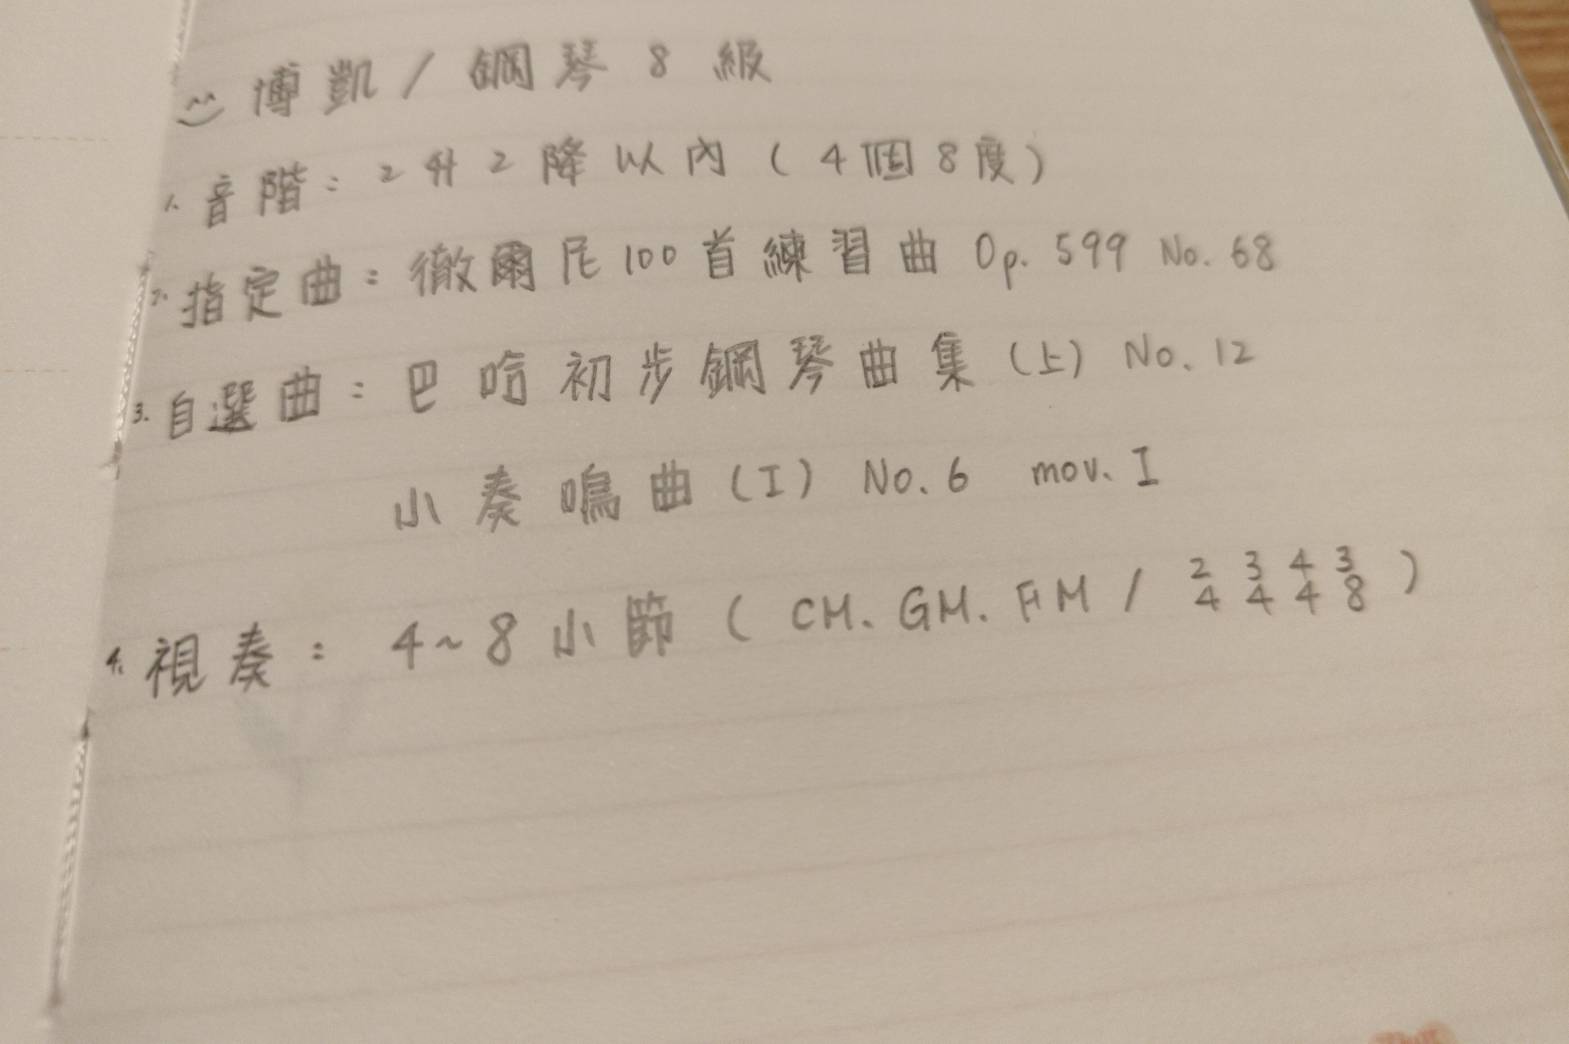 博凱 / 鋼琴 8 級
1. 音階: 2升2降以內 (4個8度)
2. 指定曲: 徹爾尼100首練習曲 Op. 599 No. 68
3. 自選曲: 巴哈初步鋼琴曲集 (上) No. 12
小奏鳴曲 (I) No. 6 mov. I
4. 視奏: 4~8小節 ( CM. GM. FM / 2/4 3/4 4/4 3/8 )